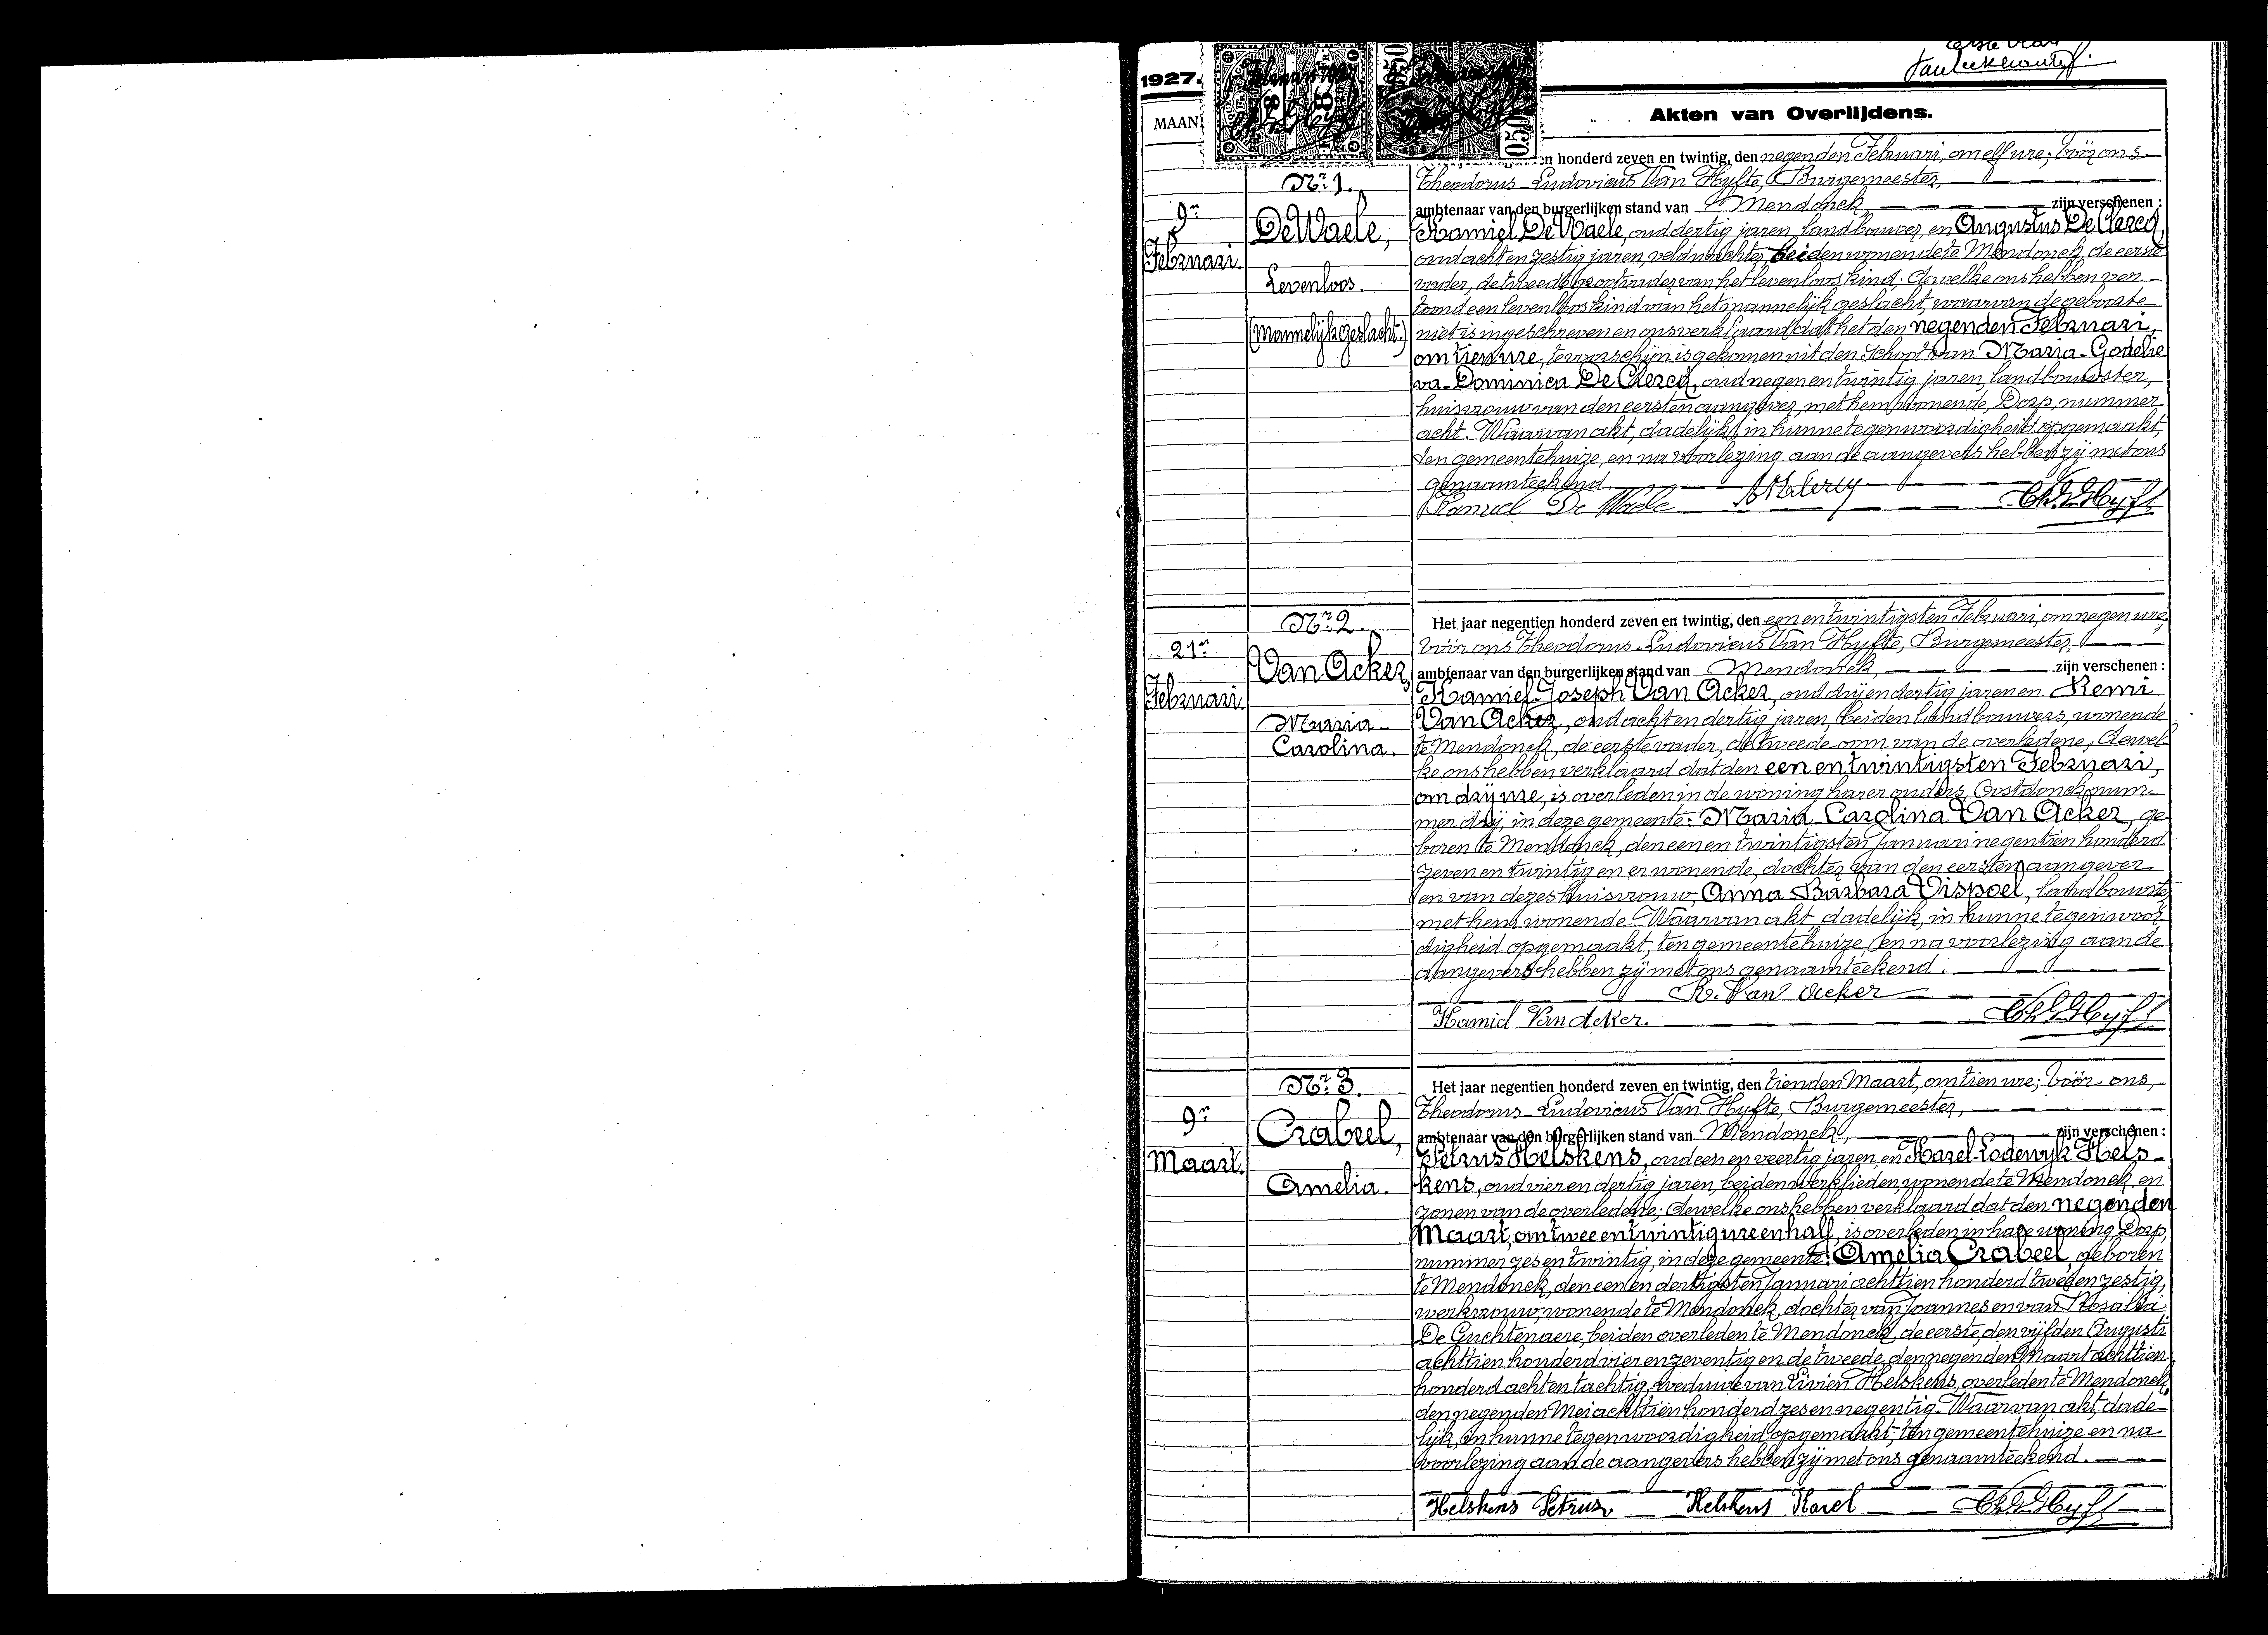 1927.
MAAN
Akten van Overlijdens.
050
en honderd zeven en twintig, den negenden Februari, om elf ure; vóór ons
Nr. 1.
Theodorus-Ludovicus Van Hyfte, Burgemeester,
9n
ambtenaar van den burgerlijken stand van Mendonck, zijn verschenen :
Februari.
De Waele,
Levenloos.
(Mannelijk geslacht.)
Kamiel De Waele, oud dertig jaren, landbouwer, en Augustus De Clercq,
oud acht en zestig jaren, veldwachter, beiden wonende te Mendonck, de eerste
vader, de tweede grootvader van het levenloos kind. Dewelke ons hebben ver-
toond een levenloos kind van het mannelijk geslacht, waarvan de geboorte
niet is ingeschreven en ons verklaard dat het den negenden Februari,
om tien ure, te voorschijn is gekomen uit den schoot van Maria-Godelie
va-Dominica De Clercq, oud negen en twintig jaren, landbouwster,
huisvrouw van den eersten aangever, met hem wonende, Dorp, nummer
acht. Waarvan akt, dadelijk, in hunne tegenwoordigheid opgemaakt,
ten gemeentehuize, en na voorlezing aan de aangevers hebben zij met ons
genaamteekend.
Kamiel De Waele
Nr. 2.
Het jaar negentien honderd zeven en twintig, den een en twintigsten Februari, om negen ure,
vóór ons Theodorus-Ludovicus Van Hyfte, Burgemeester,
21n
Februari.
Van Acker,
Maria-
Carolina.
ambtenaar van den burgerlijken stand van Mendonck, zijn verschenen :
Kamiel-Joseph Van Acker, oud drij en dertig jaren en Remi
Van Acker, oud acht en dertig jaren, beiden landbouwers, wonende
te Mendonck, de eerste vader, de tweede oom van de overledene; dewel-
ke ons hebben verklaard dat den een en twintigsten Februari,
om drij ure, is overleden in de woning harer ouders, Oostdonck, num-
mer drij, in deze gemeente: Maria-Carolina Van Acker, ge-
boren te Mendonck, den een en twintigsten Januari negentien honderd
zeven en twintig en er wonende, dochter van den eersten aangever
en van dezes huisvrouw, Anna-Barbara Vispoel, landbouwster
met hem wonende. Waarvan akt, dadelijk, in hunne tegenwoor-
digheid opgemaakt, ten gemeentehuize en na voorlezing aan de
aangevers hebben zij met ons genaamteekend.
R. Van Acker
Kamiel Van Acker.
Nr. 3.
Het jaar negentien honderd zeven en twintig, den tienden Maart, om tien ure; vóór ons,
Theodorus-Ludovicus Van Hyfte, Burgemeester,
9n
Maart.
Crabeel,
Amelia.
ambtenaar van den burgerlijken stand van Mendonck, zijn verschenen :
Petrus Helskens, oud een en veertig jaren, en Karel-Lodewijk Hels-
kens, oud vier en dertig jaren, beiden werklieden, wonende te Mendonck, en
zonen van de overledene; dewelke ons hebben verklaard dat den negenden
Maart, om twee en twintig ure en half, is overleden in hare woning, Dorp,
nummer zes en twintig, in deze gemeente: Amelia Crabeel, geboren
te Mendonck, den een en dertigsten Januari achttien honderd twee en zestig,
werkvrouw, wonende te Mendonck, dochter van Joannes en van Rosalia
De Guchtenaere, beiden overleden te Mendonck, de eerste, den vijfden Augusti
achttien honderd vier en zeventig en de tweede, den negenden Maart achttien
honderd acht en tachtig, weduwe van Livien Helskens, overleden te Mendonck,
den negenden Mei achttien honderd zes en negentig. Waarvan akt, dade-
lijk, in hunne tegenwoordigheid opgemaakt, ten gemeentehuize en na
voorlezing aan de aangevers hebben zij met ons genaamteekend.
Helskens Petrus Helskens Karel